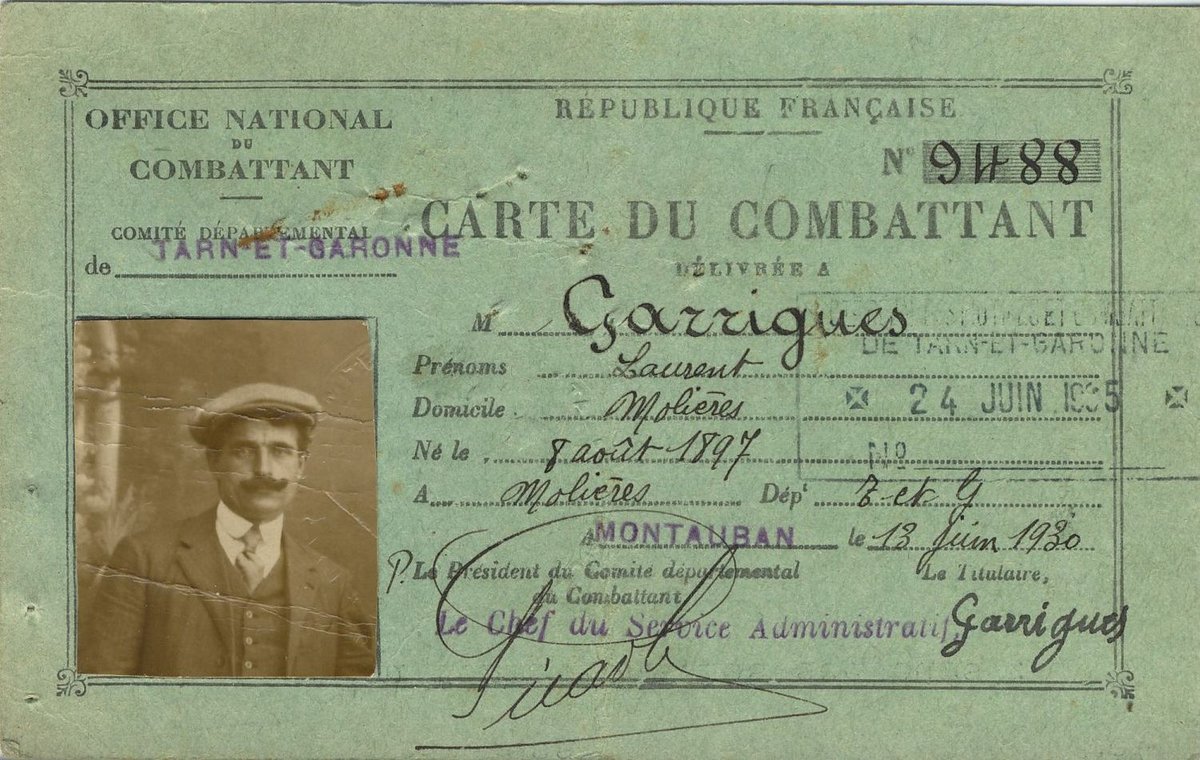 OFFICE NATIONAL
DU
COMBATTANT
COMITÉ DÉPARTEMENTAL
de TARN-ET-GARONNE
RÉPUBLIQUE FRANÇAISE
N° 9488
CARTE DU COMBATTANT
DÉLIVRÉE A
M Garrigues
Prénoms Laurent
Domicile Molières
Né le 8 août 1897
A Molières Dépt T et G
A MONTAUBAN le 13 juin 1930
P. Le Président du Comité départemental
du Combattant
Le Chef du Service Administratif
Le Titulaire,
Garrigues
DE TARN-ET-GARONNE
24 JUIN 1935
No